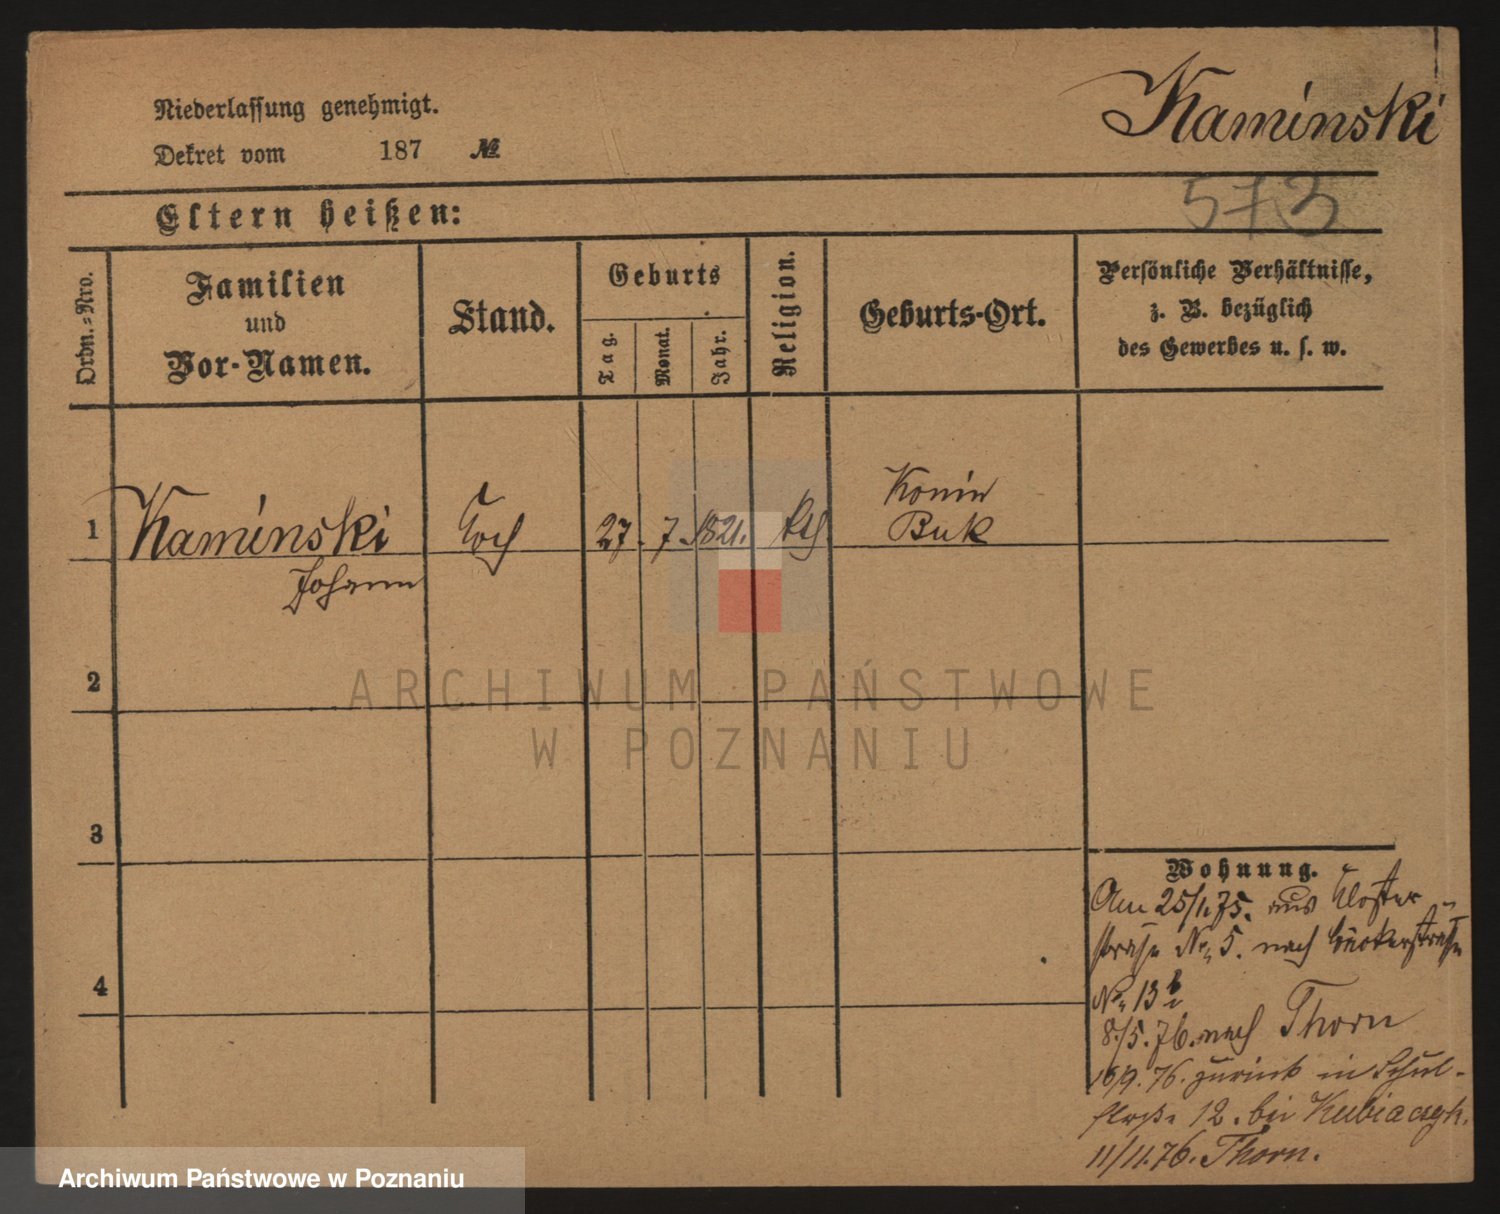 Niederlassung genehmigt.
Kaminski
Dekret vom 187 №
573
Eltern heißen:
Ordn.=Nro.
Familien
und
Vor-Namen.
Stand.
Geburts
Tag.
Monat.
Jahr.
Religion.
Geburts-Ort.
Persönliche Verhältnisse,
z. B. bezüglich
des Gewerbes u. s. w.
1 Kaminski Koch 27. 7. 1821. kth Konin
Buk
Johann
2
ARCHIWUM PAŃSTWOWE
W POZNANIU
3
Wohnung.
Am 25/1.75. aus Kloster
straße No. 5. nach
4
No. 13b
8./5.76. nach Thorn
10/9.76. zurück in Schul-
straße 12. bei
11/11.76. Thorn.
Archiwum Państwowe w Poznaniu